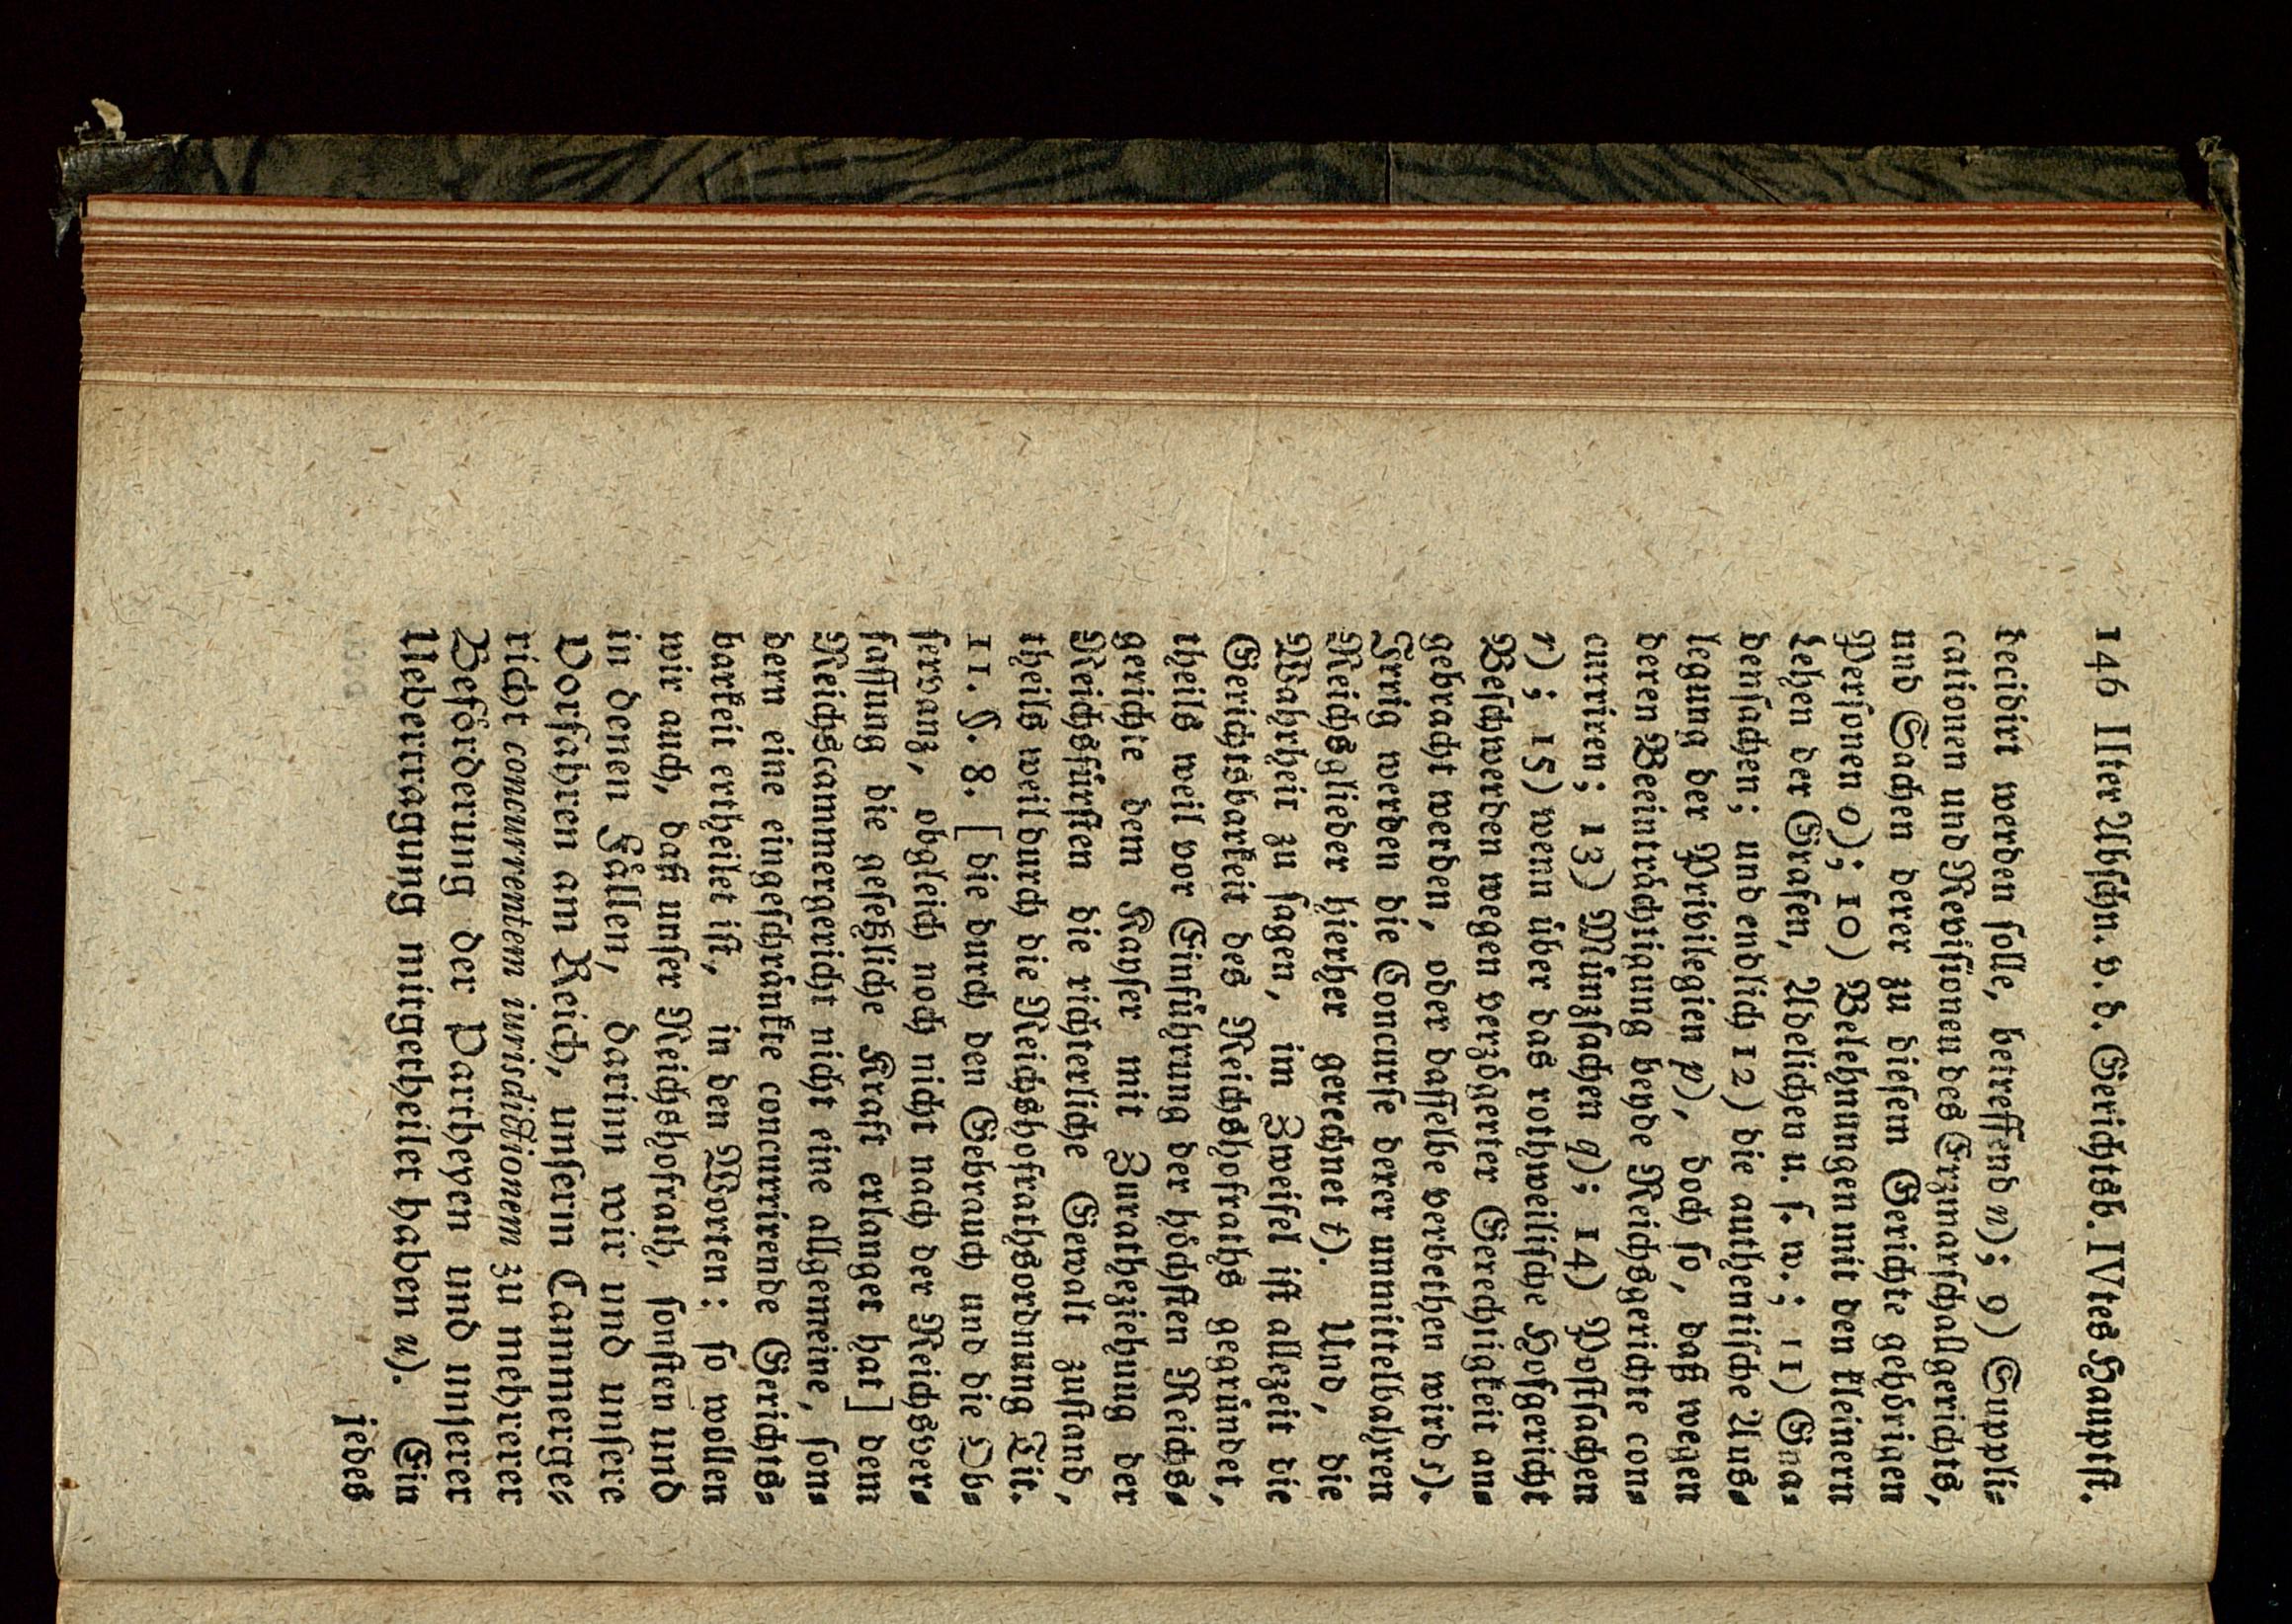 146 IIter Abschn. v. d. Gerichtsb. IVtes Hauptst.
decidirt werden solle, betreffend n); 9) Suppli-
cationen und Revisionen des Erzmarschallgerichts,
und Sachen derer zu diesem Gerichte gehörigen
Personen o); 10) Belehnungen mit den kleinern
Lehen der Grafen, Adelichen u. s. w.; 11) Gna-
densachen; und endlich 12) die authentische Aus-
legung der Privilegien p), doch so, daß wegen
deren Beeinträchtigung beyde Reichsgerichte con-
curriren; 13) Münzsachen q); 14) Postsachen
r); 15) wenn über das rothweilische Hofgericht
Beschwerden wegen verzögerter Gerechtigkeit an-
gebracht werden, oder dasselbe verbethen wird s).
Irrig werden die Concurse derer unmittelbahren
Reichsglieder hierher gerechnet t). Und, die
Wahrheit zu sagen, im Zweifel ist allezeit die
Gerichtsbarkeit des Reichshofraths gegründet,
theils weil vor Einführung der höchsten Reichs-
gerichte dem Kayser mit Zuratheziehung der
Reichsfürsten die richterliche Gewalt zustand,
theils weil durch die Reichshofrathsordnung Tit.
II. §. 8. [die durch den Gebrauch und die Ob-
servanz, obgleich noch nicht nach der Reichsver-
fassung die gesetzliche Kraft erlanget hat] dem
Reichscammergericht nicht eine allgemeine, son-
dern eine eingeschränkte concurrirende Gerichts-
barkeit ertheilet ist, in den Worten: so wollen
wir auch, daß unser Reichshofrath, sonsten und
in denen Fällen, darinn wir und unsere
Vorfahren am Reich, unserm Cammerge-
richt concurrenten iurisdictionem zu mehrerer
Beförderung der Partheyen und unserer
Uebertragung mitgetheilet haben u). Ein
jedes